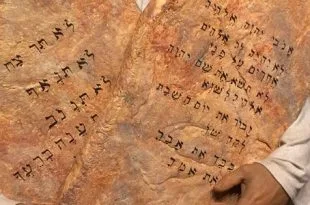 אנכי יהוה אלהיך
לא יהיה לך
אחרים על פני
לא תשא את שם יהוה
אלהיך לשוא
זכור את יום השבת
לקדשו
כבד את אביך
את
לא תרצח
לא תנאף
לא תגנב
תענה ברעך